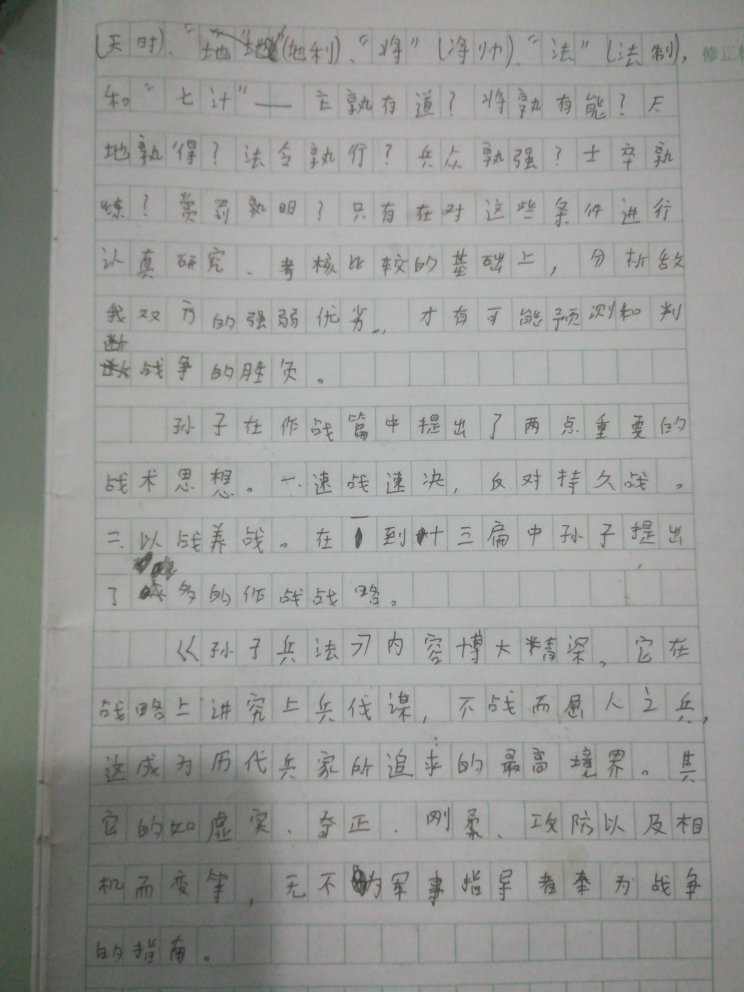 (天时)、"地"(地利)、"将"(将帅)、"法"(法制),
修正
和"七计"——主孰有道?将孰有能?天
地孰得?法令孰行?兵众孰强?士卒孰
练?赏罚孰明?只有在对这些条件进行
认真研究、考核比较的基础上,分析敌
我双方的强弱优劣,才有可能预测和判
断战争的胜负。
孙子在作战篇中提出了两点重要的
战术思想。一.速战速决,反对持久战。
二.以战养战。在一到十三扁中孙子提出
了 多的作战战略。
《孙子兵法》内容博大精深。它在
战略上讲究上兵伐谋,不战而屈人之兵,
这成为历代兵家所追求的最高境界。其
它的如虚实、奇正、刚柔、攻防以及相
机而变等,无不为军事指导者奉为战争
的指南。